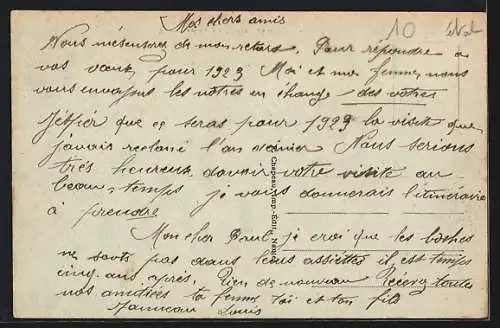 Mes chers amis
10
Nous m'escuserez de mon retard. Pour répondre a
vos vœux, pour 1929 Moi et ma femme, nous
vous envoyons les nôtres en échange des votres
J'espier que ce seras pour 1929 la visite que
j'avais reclamé l'an dernier Nous serions
très heureux, d'avoir votre visite au
beau-temps je vous donnerais l'itinéraire
à prendre
Chapeau, Imp.-Édit., Nantes
Mon cher Paul je crois que les boches
ne sont pas dans leurs assiettes il est temps
cinq ans après. Rien de nouveau Recevez toutes
nos amitiées ta femme, toi et ton fils
Janneau Louis